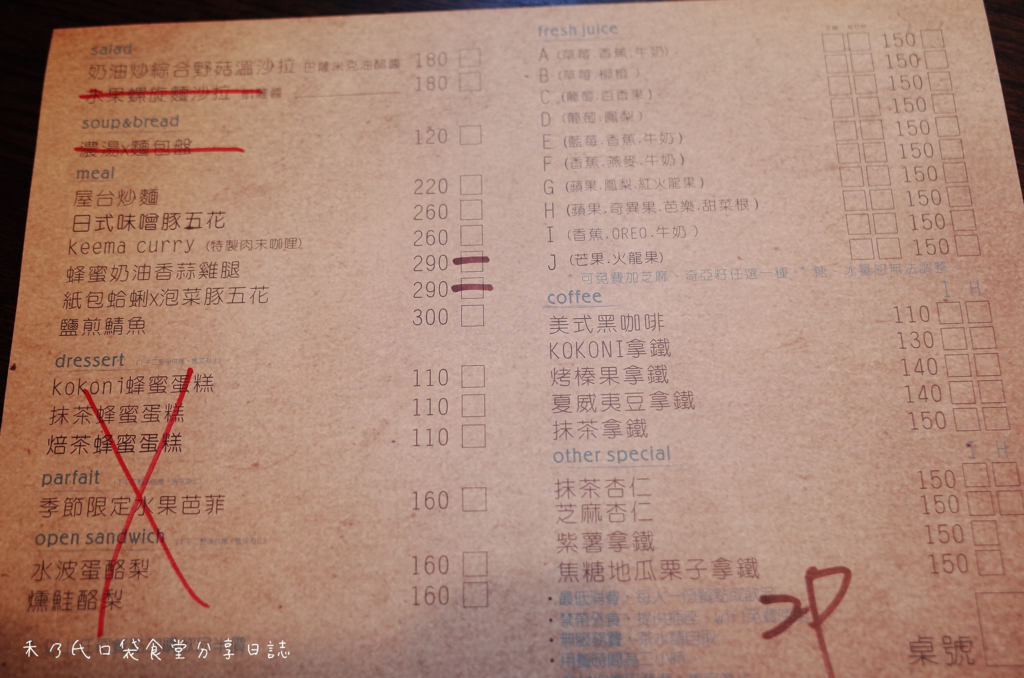 salad
奶油炒綜合野菇溫沙拉 巴薩米克油醋醬 180
水果螺旋麵沙拉 180
soup&bread
濃湯x麵包盤 120
meal
屋台炒麵 220
日式味噌豚五花 260
keema curry (特製肉末咖哩) 260
蜂蜜奶油香蒜雞腿 290
紙包蛤蜊x泡菜豚五花 290
鹽煎鯖魚 300
dressert
kokoni蜂蜜蛋糕 110
抹茶蜂蜜蛋糕 110
焙茶蜂蜜蛋糕 110
parfait
季節限定水果芭菲 160
open sandwich
水波蛋酪梨 160
燻鮭酪梨 160
fresh juice
A (草莓.香蕉.牛奶) 150
B (草莓.柳橙) 150
C (葡萄.百香果) 150
D (葡萄.鳳梨) 150
E (藍莓.香蕉.牛奶) 150
F (香蕉.燕麥.牛奶) 150
G (蘋果.鳳梨.紅火龍果) 150
H (蘋果.奇異果.芭樂.甜菜根) 150
I (香蕉.OREO.牛奶) 150
J (芒果.火龍果) 150
可免費加芝麻、奇亞籽任選一種
coffee I H
美式黑咖啡 110
KOKONI拿鐵 130
烤榛果拿鐵 140
夏威夷豆拿鐵 140
抹茶拿鐵 150
other special I H
抹茶杏仁 150
芝麻杏仁 150
紫薯拿鐵 150
焦糖地瓜栗子拿鐵 150
桌號
禾乃代口袋食堂分享日誌